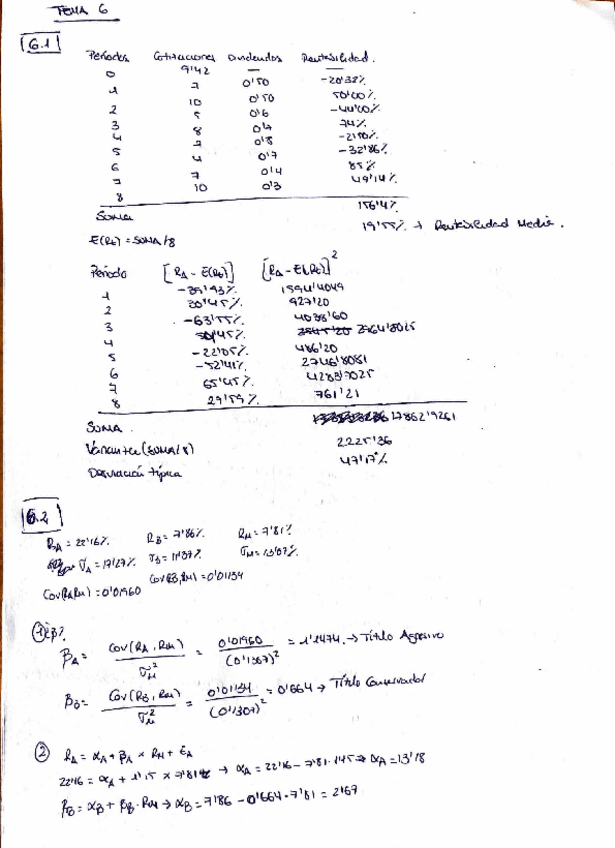 TEMA 6
6.1
Períodos Cotizaciones Dividendos Rentabilidad
0 9'42 — —
1 7 0'50 -20'38%
2 10 0'50 50'00%
3 5 0'6 -44'00%
4 8 0'7 74%
5 7 0'8 -2'50%
6 4 0'7 -32'86%
7 7 0'4 85%
8 10 0'3 49'14%
SUMA 156'4%
E(Rt) = SUMA/8 19'55% → Rentabilidad Media.
Período [RA - E(Rt)] [RA - E(Rt)]²
1 -39'93% 1594'4049
2 30'45% 927'20
3 -63'55% 4038'60
4 50'45% 2764'8025
5 -22'05% 486'20
6 -52'41% 2746'8081
7 65'45% 4283'7025
8 29'59% 761'21
SUMA 17862'9261
Varianza (SUMA/8) 2225'36
Desviación típica 47'17%
6.2
RA = 22'16% RB = 7'86% RM = 7'81%
σA = 17'27% σB = 11'37% σM = 13'07%
Cov(RA,RM) = 0'01960 Cov(RB,RM) = 0'01134
① ¿β?
βA = Cov(RA, RM) / σM² = 0'01960 / (0'1307)² = 1'1474 → Título Agresivo
βB = Cov(RB, RM) / σM² = 0'01134 / (0'1307)² = 0'664 → Título Conservador
② RA = αA + βA × RM + εA
22'16 = αA + 1'15 × 7'81 → αA = 22'16 - 7'81 · 1'15 → αA = 13'18
RB = αB + βB · RM → αB = 7'86 - 0'664 · 7'81 = 2'67